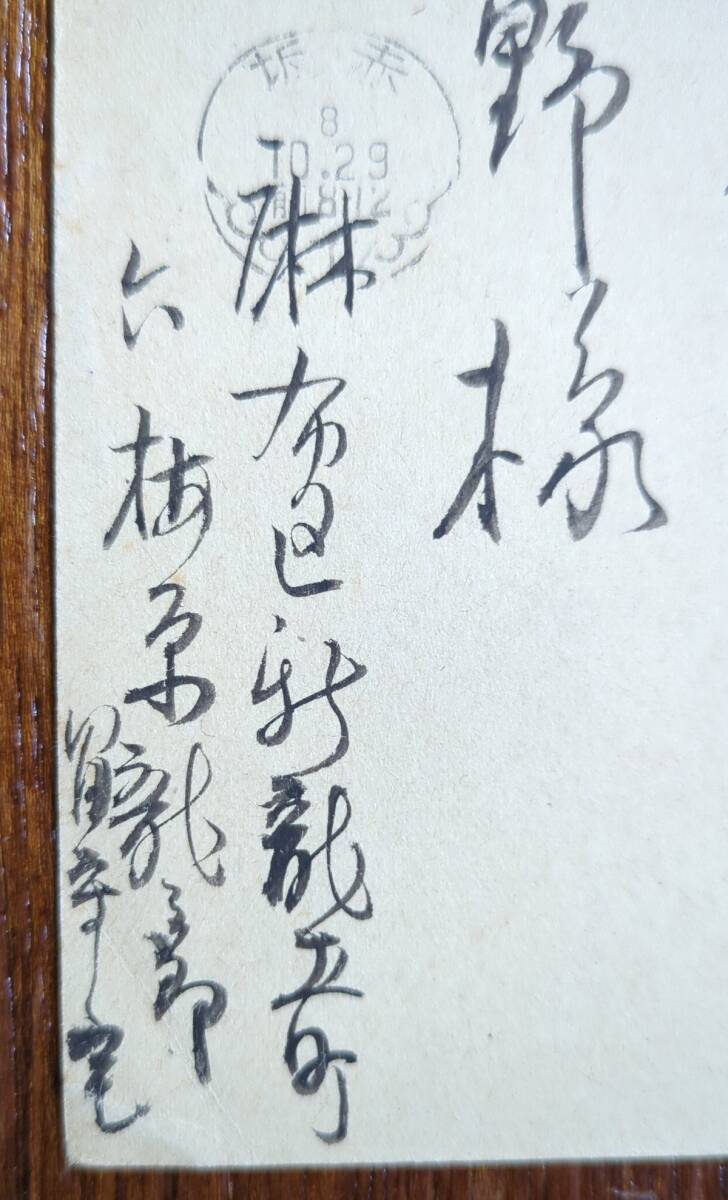 野様
赤坂
8
10.29
前8-12
麻布区新龍土町
六 梅原龍三郎
留守宅